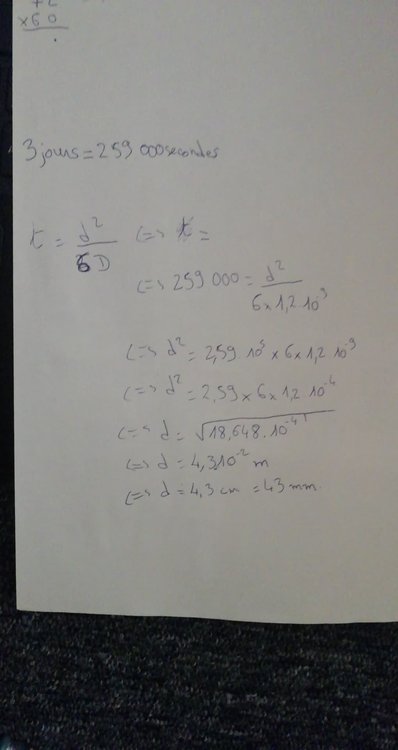 x60
3 jours = 259 000 secondes
t = d²/6D <=> t =
<=> 259 000 = d²/6 x 1,2 . 10⁻⁹
<=> d² = 2,59 . 10⁵ x 6 x 1,2 . 10⁻⁹
<=> d² = 2,59 x 6 x 1,2 . 10⁻⁴
<=> d = √18,648 . 10⁻⁴
<=> d = 4,3.10⁻² m
<=> d = 4,3 cm = 43 mm.